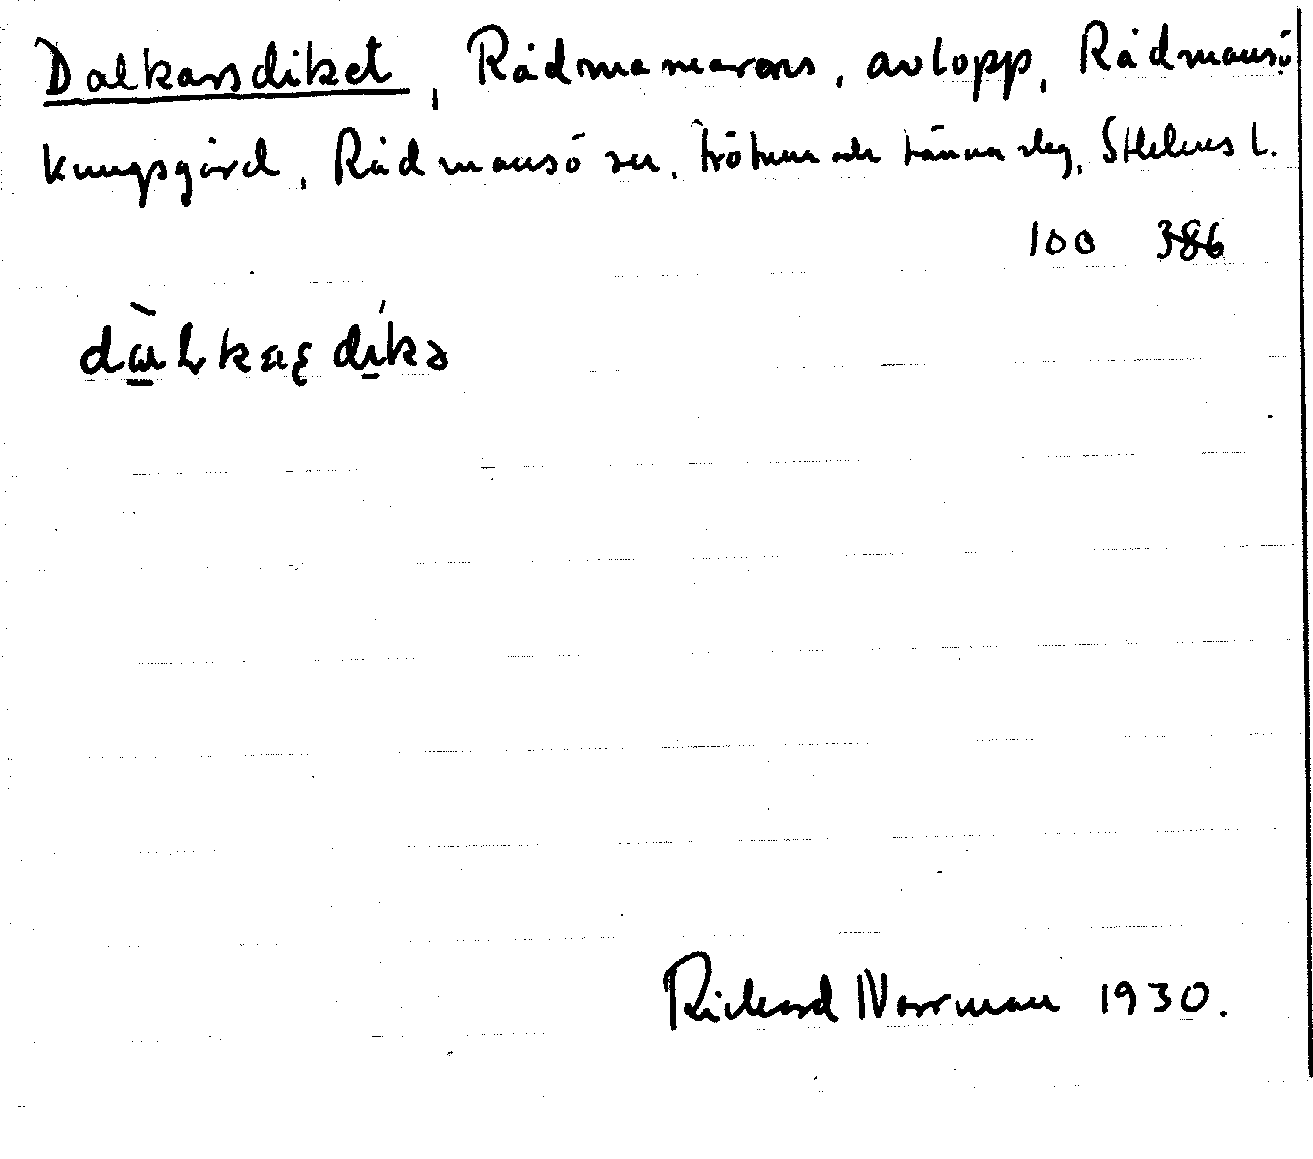 Dalkarsdiket, Rådmanmarens, avlopp, Rådmansö
Kungsgård, Rådmansö sn, Frötuna och Länna slg, Sthlms l.
100 386
Rickard Norrman 1930.